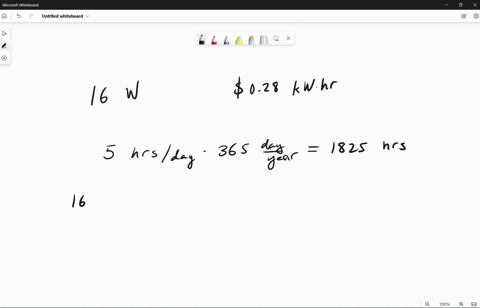 Microsoft Whiteboard
Untitled whiteboard
16 W $0.28 kW·hr
5 hrs/day · 365 day/year = 1825 hrs
16
100%